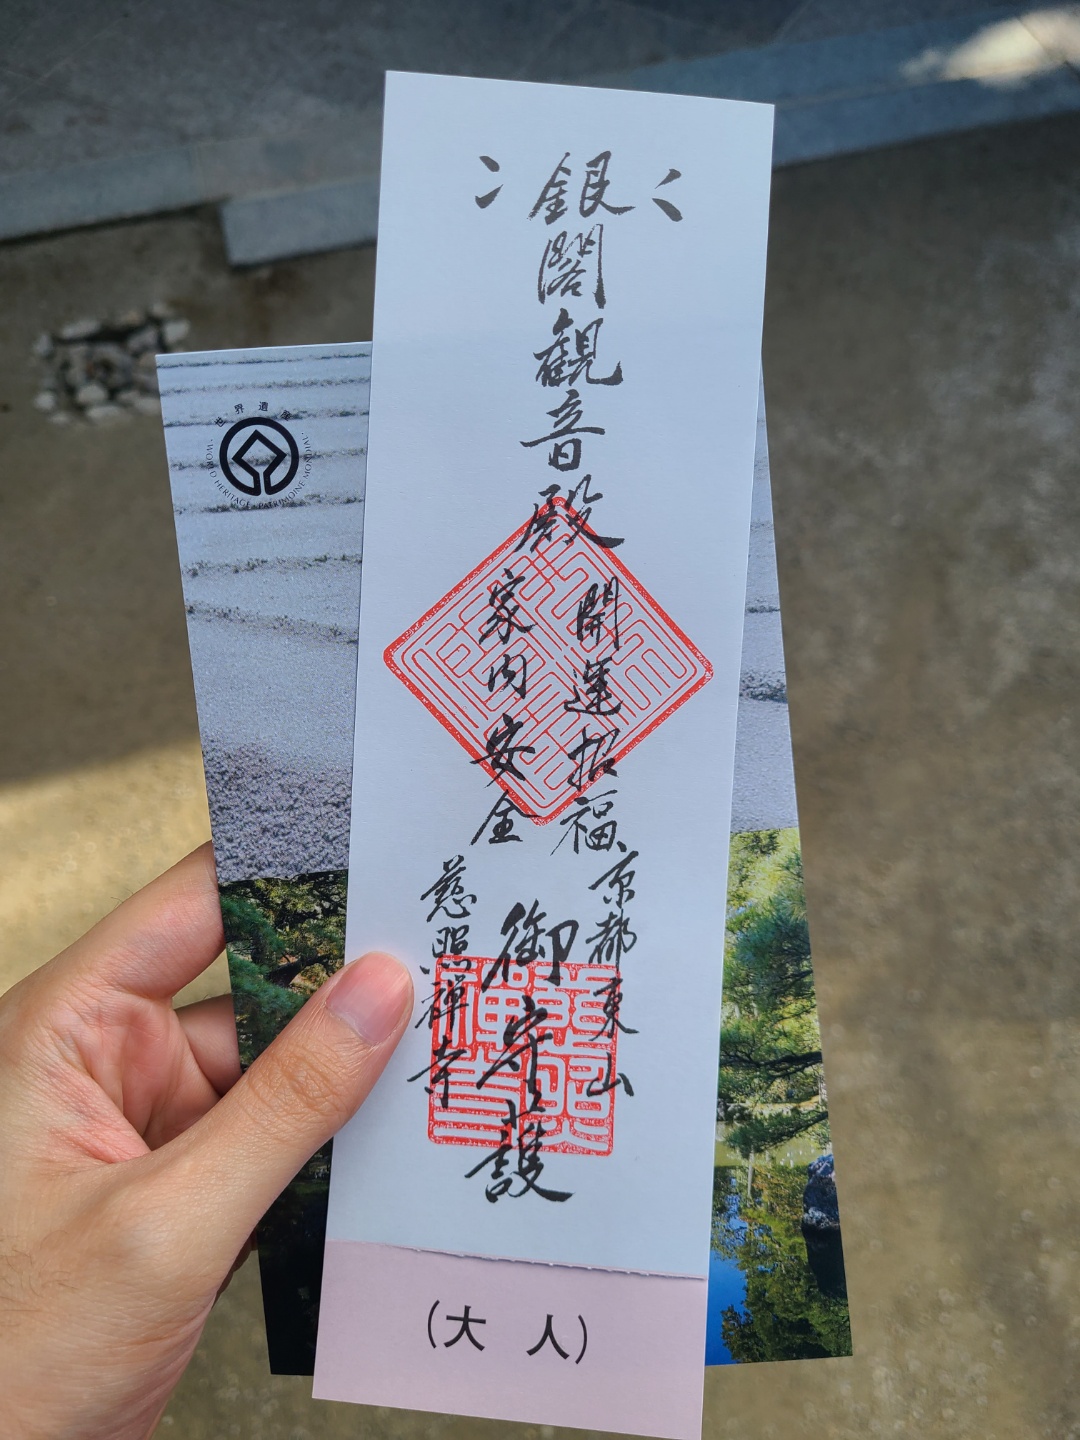 銀閣観音殿
開運招福
家内安全
京都東山
慈照禅寺
御守護
(大人)
世界遺産
WORLD HERITAGE • PATRIMOINE MONDIAL